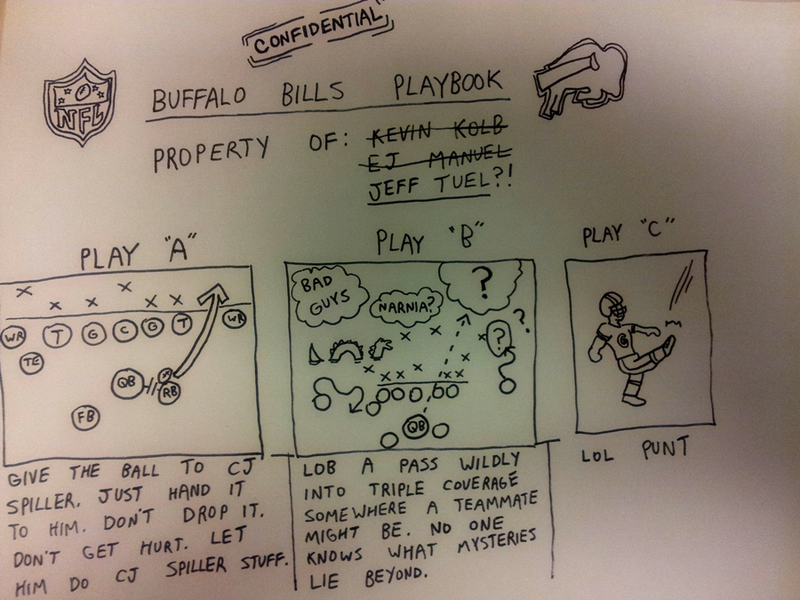 CONFIDENTIAL
NFL
BUFFALO BILLS PLAYBOOK
PROPERTY OF: KEVIN KOLB
EJ MANUEL
JEFF TUEL?!
PLAY "A"
X X X X X X
WR T G C G T WR
TE
QB X RB
FB
GIVE THE BALL TO CJ
SPILLER. JUST HAND IT
TO HIM. DON'T DROP IT.
DON'T GET HURT. LET
HIM DO CJ SPILLER STUFF.
PLAY "B"
BAD
GUYS
NARNIA?
?
? ?
X X X X
X X X X X X
QB
LOB A PASS WILDLY
INTO TRIPLE COVERAGE
SOMEWHERE A TEAMMATE
MIGHT BE. NO ONE
KNOWS WHAT MYSTERIES
LIE BEYOND.
PLAY "C"
6
LOL PUNT